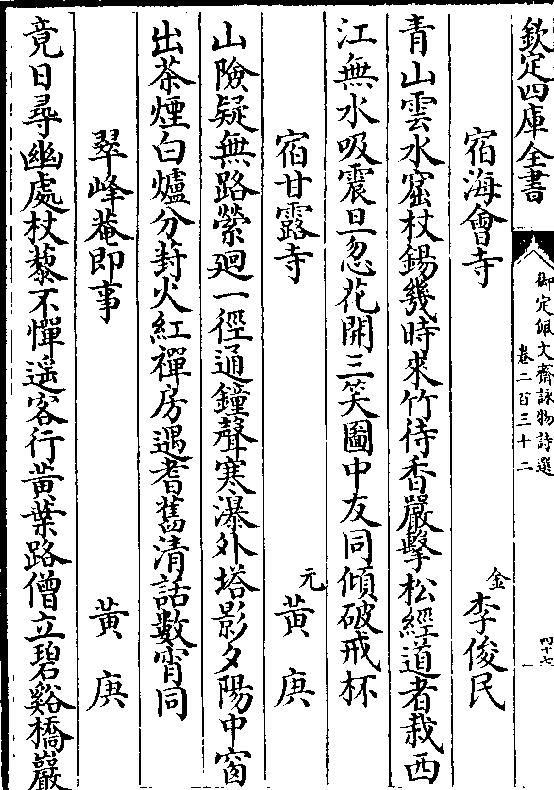 欽定四庫全書
御定佩文齋詠物詩選
卷二百三十二
四十七
宿海會寺
金李俊民
青山雲水窟杖錫幾時來竹待香嚴擊松經道者栽西
江無水吸震旦忽花開三笑圖中友同傾破戒杯
宿甘露寺
元黃庚
山險疑無路縈廻一徑通鐘聲寒瀑外塔影夕陽中窗
出茶煙白爐分葑火紅禪房遇耆舊清話數宵同
翠峰菴即事
黃庚
竟日尋幽處杖藜不憚遥客行黃葉路僧立碧谿橋巖